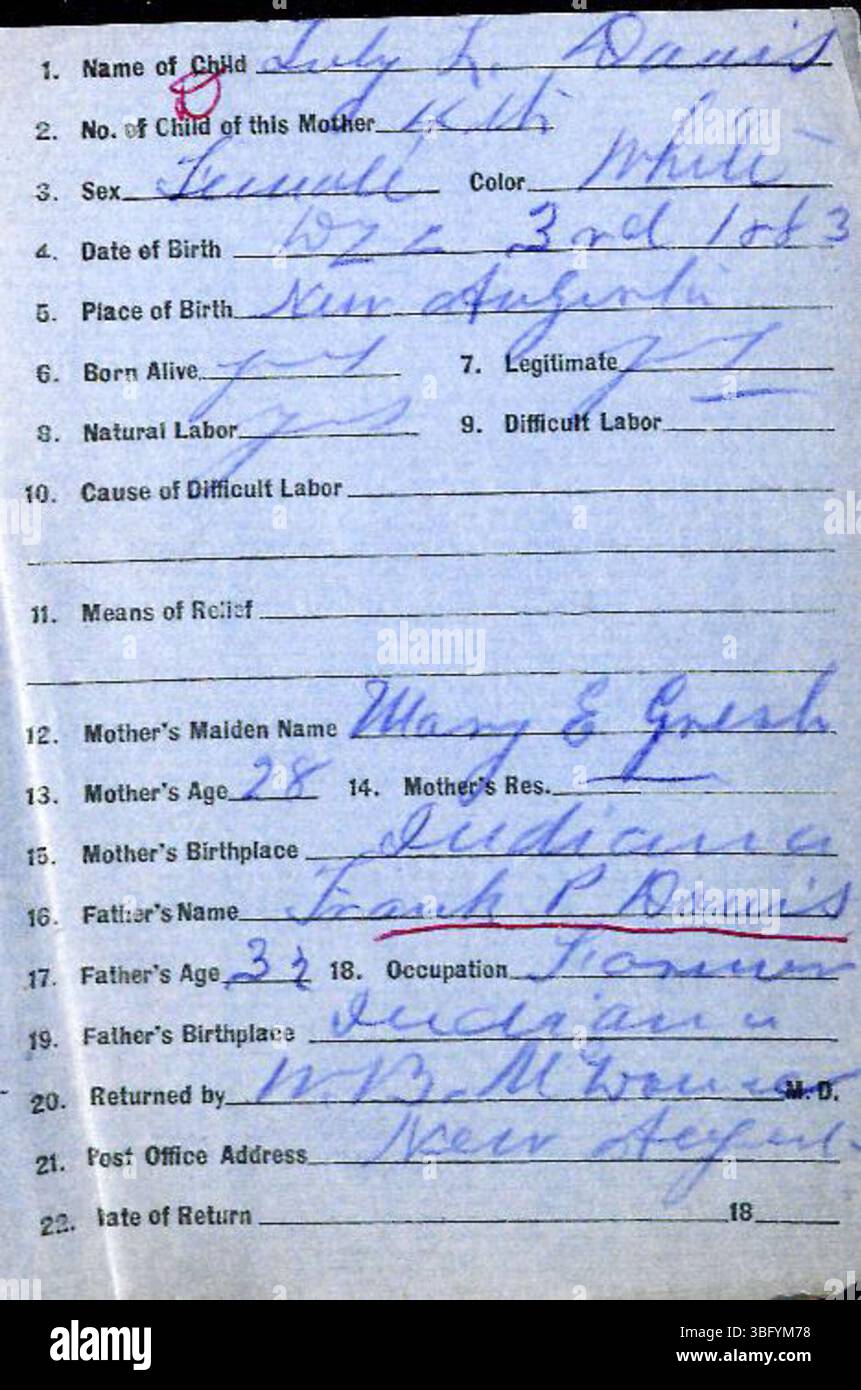 1. Name of Child L. Davis
2. No. of Child of this Mother
3. Sex Female Color White
4. Date of Birth Dec 3rd 1883
5. Place of Birth New Augusta
6. Born Alive yes 7. Legitimate yes
8. Natural Labor yes 9. Difficult Labor
10. Cause of Difficult Labor
11. Means of Relief
12. Mother's Maiden Name Mary E
13. Mother's Age 28 14. Mother's Res.
15. Mother's Birthplace Indiana
16. Father's Name Frank P Davis
17. Father's Age 32 18. Occupation Farmer
19. Father's Birthplace Indiana
20. Returned by W. B. M.D.
21. Post Office Address New
22. Date of Return 18
alamy
Image ID: 3BFYM78
www.alamy.com